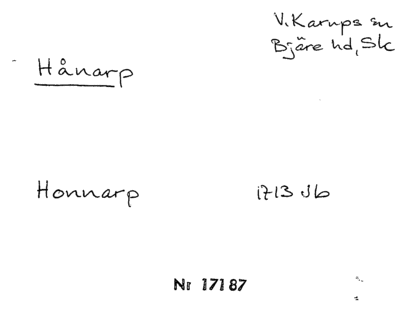 V. Karups sn
Bjäre hd, Sk
Hånarp
Honnarp 1713 Jb
Nr 17187